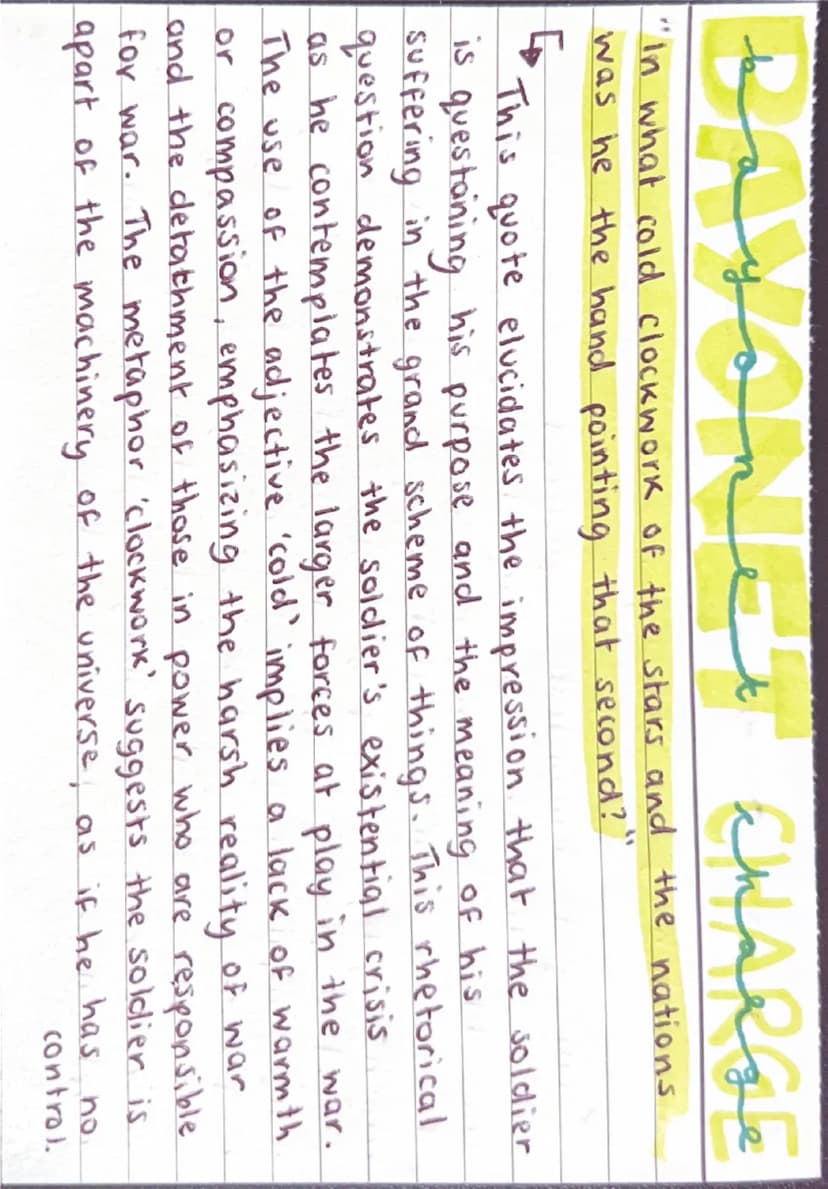 BAYONET CHARGE
bayonet charge
"In what cold clockwork of the stars and the nations
was he the hand pointing that second?"
↳ This quote elucidates the impression that the soldier
is questaining his purpose and the meaning of his
suffering in the grand scheme of things. This rhetorical
question demonstrates the soldier's existential crisis
as he contemplates the larger forces at play in the war.
The use of the adjective 'cold' implies a lack of warmth
or compassion, emphasizing the harsh reality of war
and the detatchment of those in power who are responsible
for war. The metaphor 'clockwork' suggests the soldier is
apart of the machinery of the universe, as if he has no
control.